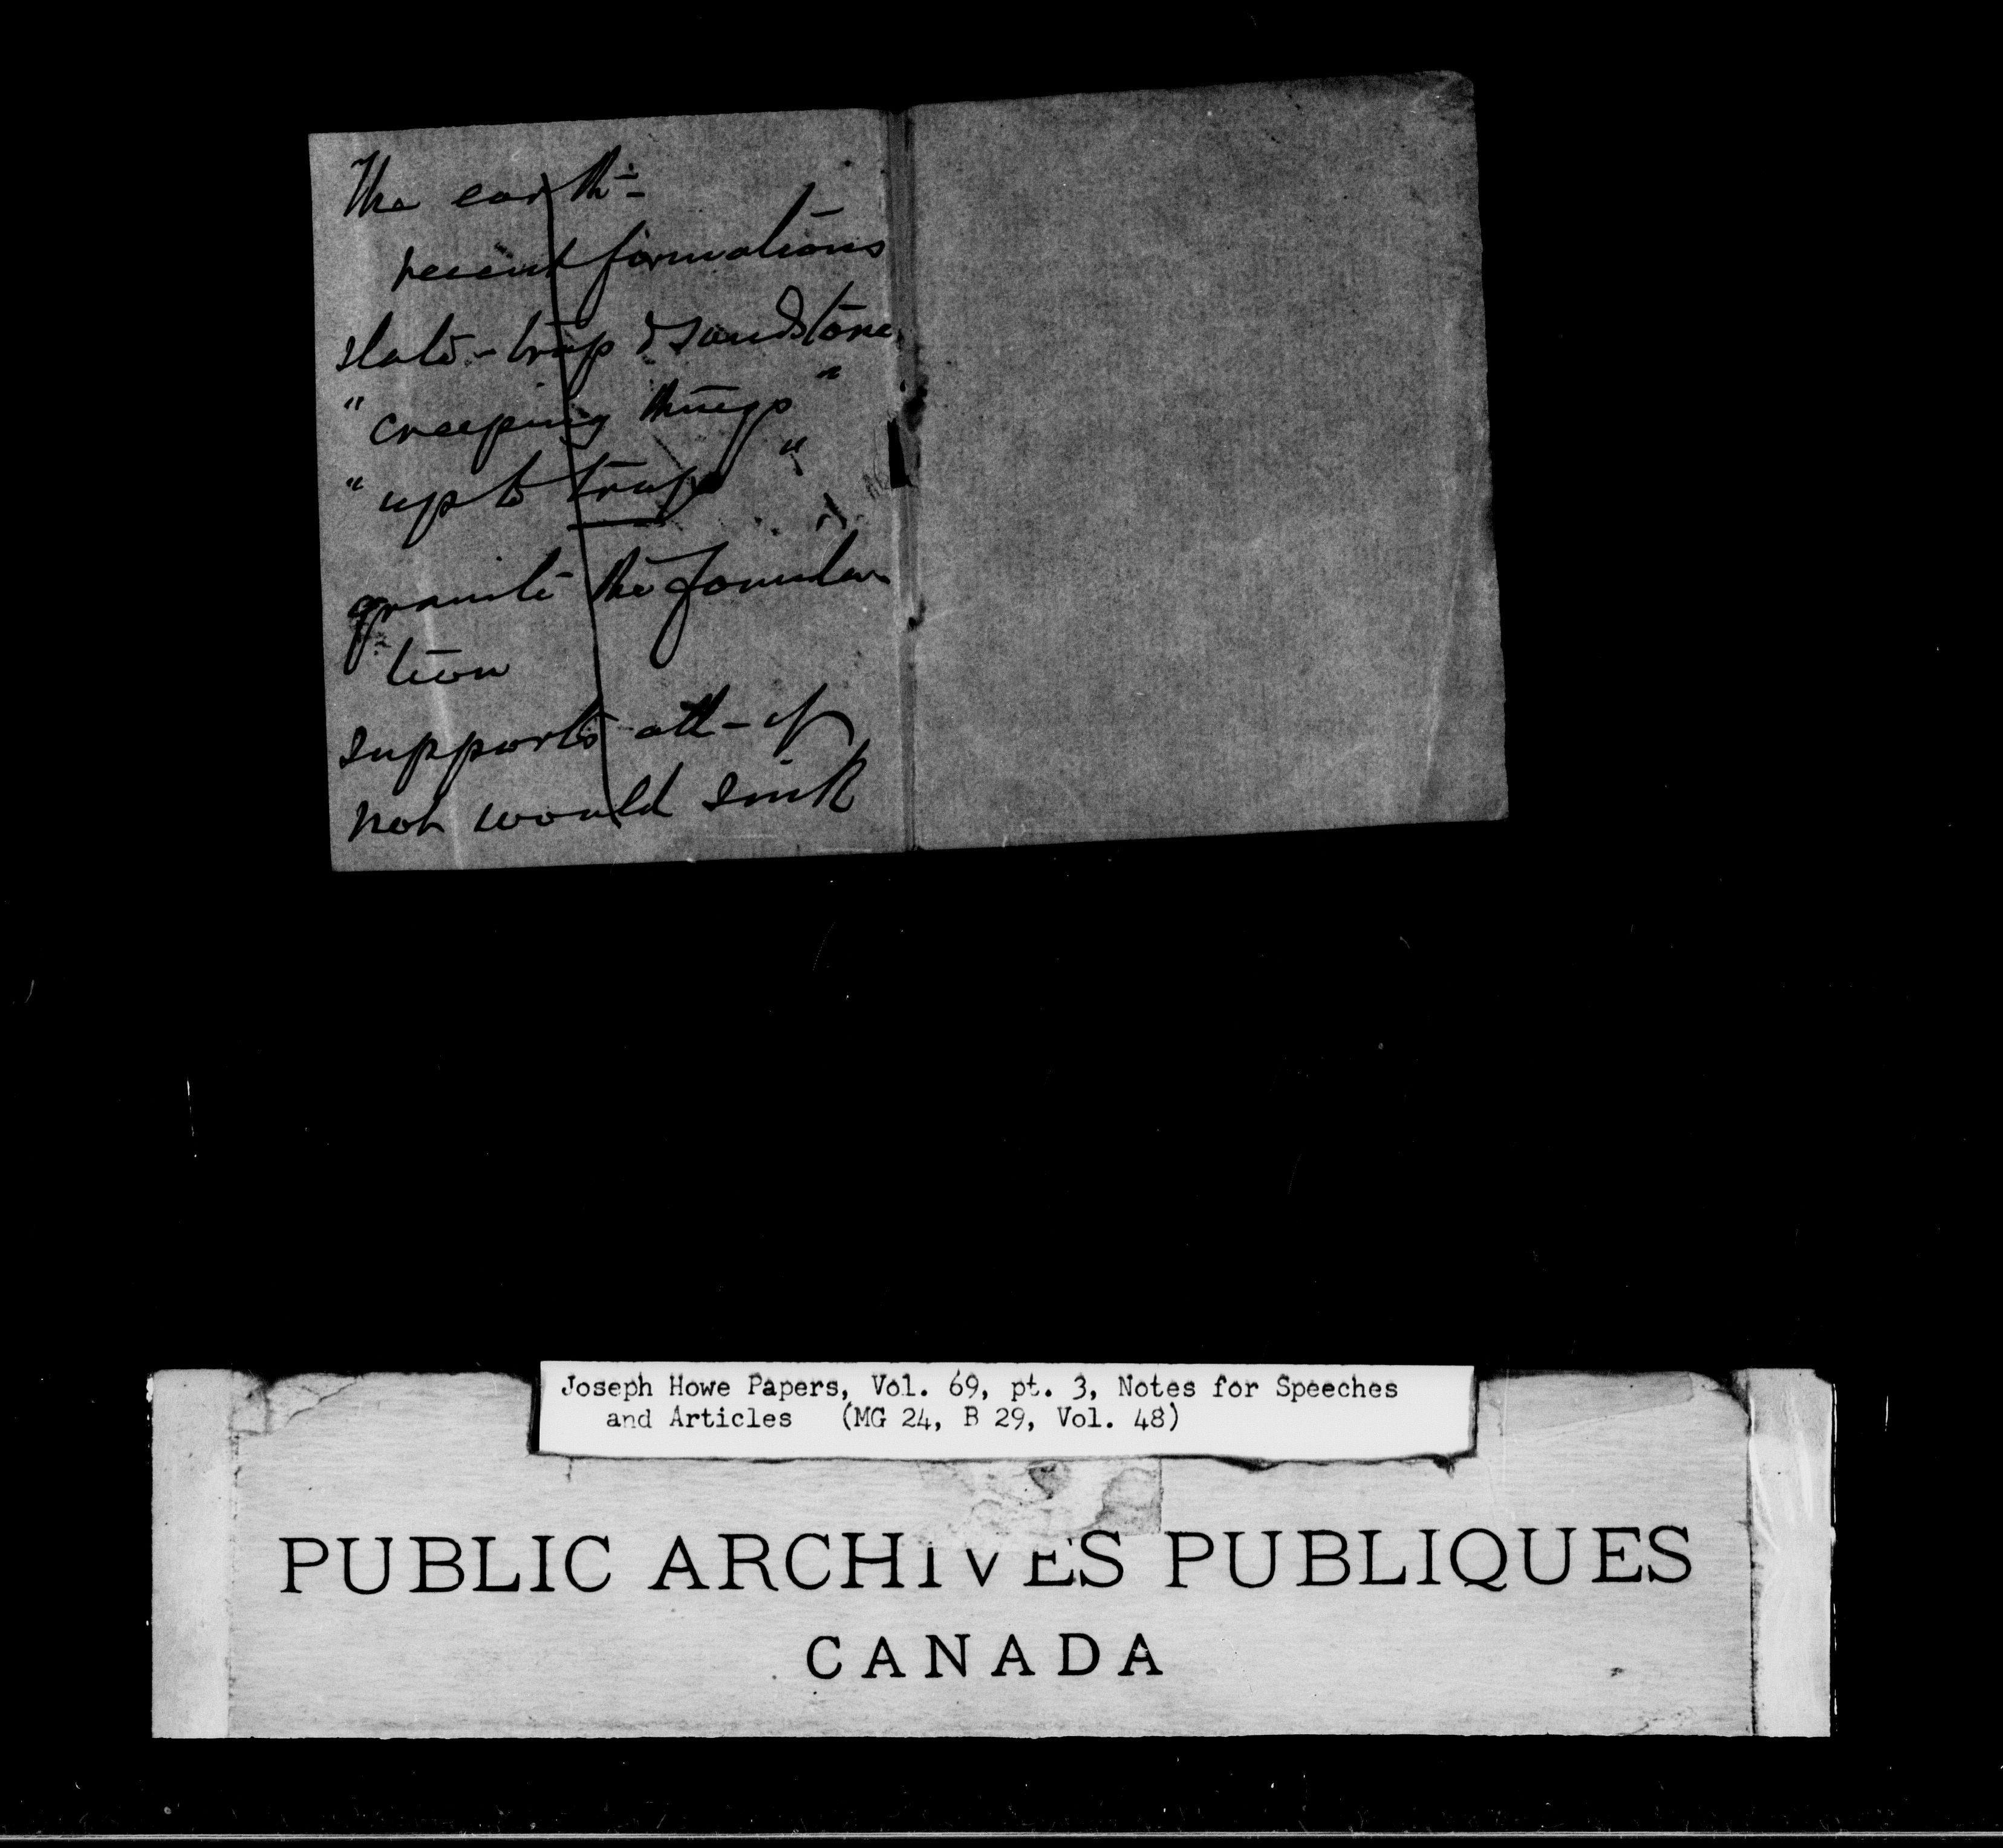 The earth -
recent formations
slate - trap & sandstone
" creeping things "
" up to trap "
granite the founda
tion
supports all - if
not would sink
Joseph Howe Papers, Vol. 69, pt. 3, Notes for Speeches
and Articles (MG 24, B 29, Vol. 48)
PUBLIC ARCHIVES PUBLIQUES
CANADA